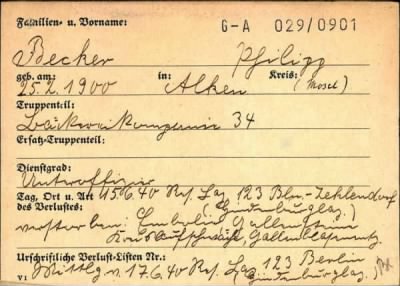 Familien- u. Vorname: G-A 029/0901
Becker Philipp
geb. am: in: Kreis:
25.2.1900 Alken (Mosel)
Truppenteil:
Bäckereikompanie 34
Ersatz-Truppenteil:
Dienstgrad:
Unteroffizier
Tag, Ort u. Art des Verlustes: 15.6.40 Res. Laz. 123 Bln-Zehlendorf
(Hindenburglaz.)
verstorben: Embolie, Gallenstein
Kreislaufschwäche, Gallenblasenentz.
Urschriftliche Verlust-Listen Nr.:
Mittlg v. 17.6.40 Res. Laz. 123 Berlin
VI (Hindenburglaz.)